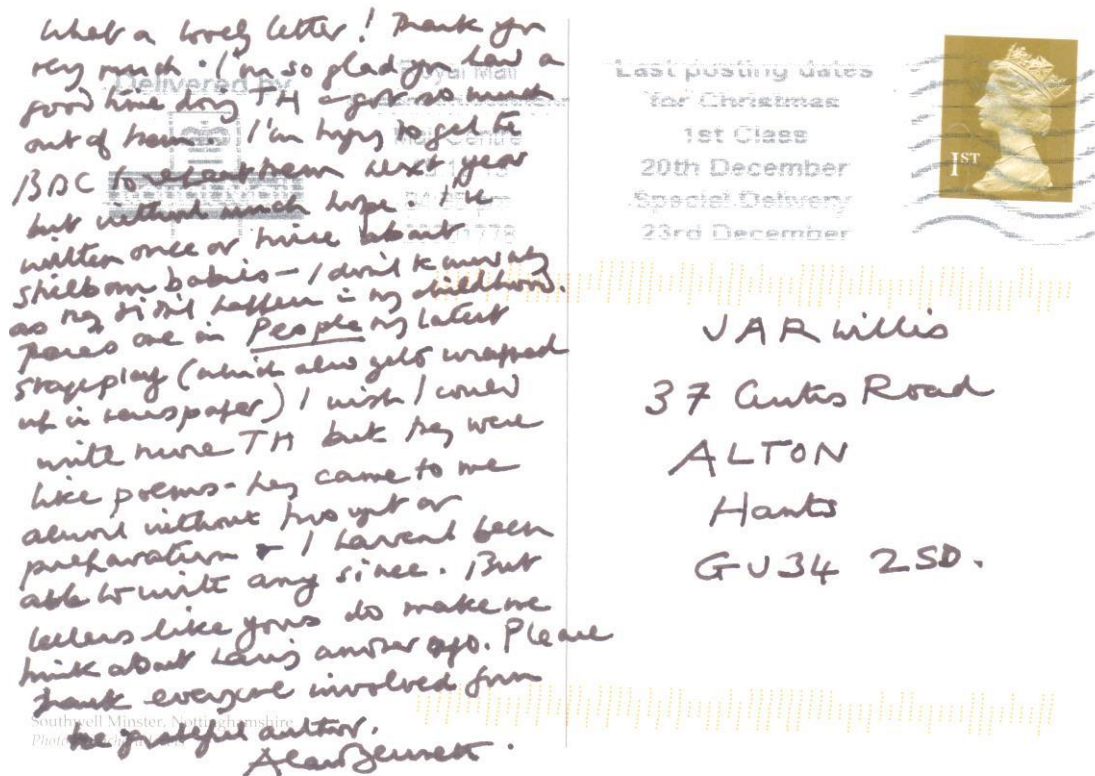 What a lovely letter! Thank you
very much. I'm so glad you had a
good time doing TH & got so much
out of them. I'm trying to get the
BBC to repeat them next year
but without much hope. I've
written once or twice about
stillborn babies – I don't know why
as they didn't happen in my childhood.
There's one in People my latest
stageplay (which also gets wrapped
up in newspaper) I wish I could
write more TH but they were
like poems – they came to me
almost without thought or
preparation & I haven't been
able to write any since. But
letters like yours do make me
think about having another go. Please
thank everyone involved from
the grateful author.
Alan Bennett.
Southwell Minster, Nottinghamshire
Delivered by
Royal Mail
Mail Centre
Last posting dates
for Christmas
1st Class
20th December
Special Delivery
23rd December
1ST
JAR Willis
37 Curtis Road
ALTON
Hants
GU34 2SD.